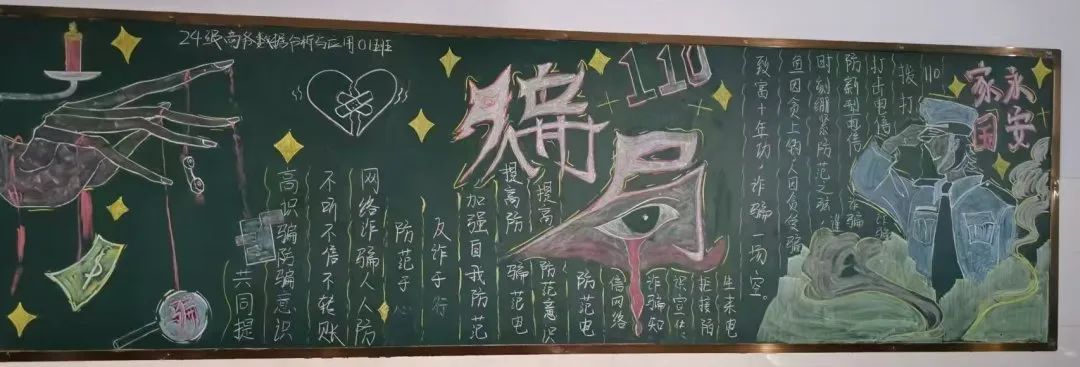 24级商务数据分析与应用01班
骗局
110
家国永安
110
拨打
打击电信
诈骗
防新型电信诈骗
时刻绷紧防范之弦 谨
鱼因贪上钩人因贪受骗
致富十年功 诈骗一场空。
生来电
拒接陌
识宣传
诈骗知
信网络
防范电
提高防范意识
提高防骗范电
加强自我防范
反诈于行
防范于心
网络诈骗人人防
不听不信不转账
高识骗防骗意识
共同提
骗